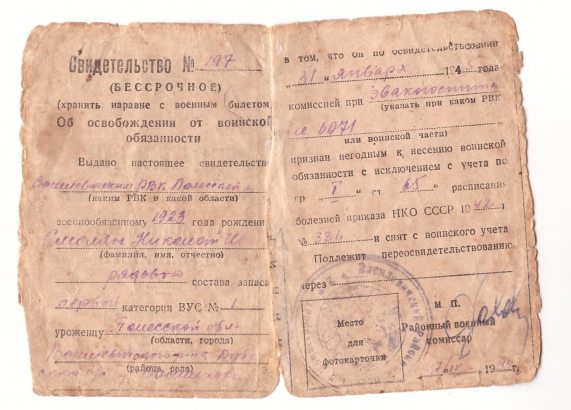 Свидетельство № 197
(БЕССРОЧНОЕ)
(хранить наравне с военным билетом)
Об освобождении от воинской
обязанности
Выдано настоящее свидетельство
Василевичским РВК Полесской
(каким РВК и какой области)
военнообязанному 1923 года рождения
Николай
(фамилия, имя, отчество)
состава запаса
первой категории ВУС № 1
уроженцу Полесской обл.
(области, города)
Василевичского
(района, села)
в том, что он по освидетельствовании
"31" января 194 года
комиссией при эвакогоспита
(указать при каком РВК
ле
или воинской части)
признан негодным к несению воинской
обязанности с исключением с учета по
гр I ст 65 расписания
болезней приказа НКО СССР 1942
№ 336 и снят с воинского учета
Подлежит переосвидетельствованию
через
М П.
Районный военный
комиссар
Место
для
фотокарточки